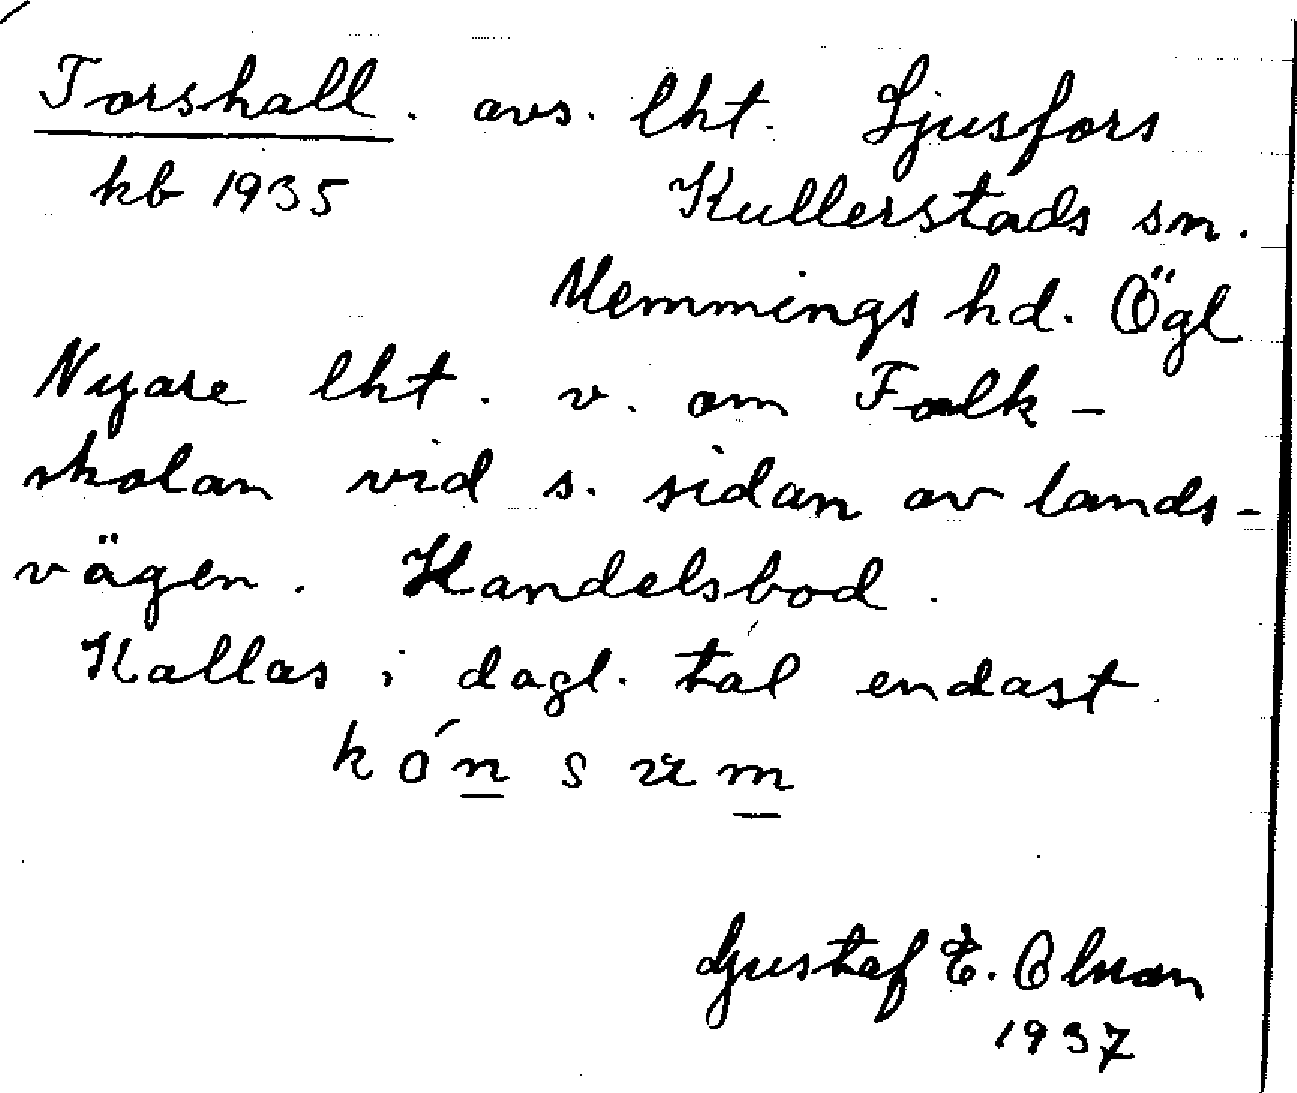 Torshall. avs. lht. Ljusfors
kb 1935 Kullerstads sn.
Memmings hd. Ögl
Nyare lht. v. om Folk-
skolan vid s. sidan av lands-
vägen. Handelsbod.
Kallas i dagl. tal endast
kónsum
Gustaf E. Olman
1937